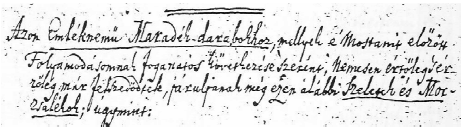 Azon Emléknemű Maradék-darabokhoz, mellyek é Mostanit előzött
Folyamodásomnak foganatos következése szerént, Nemesen értőleg 's ér-
zőleg már felvevődtek, járuljanak még ezen alábbi Szeletek és Mor-
zsalékok; úgymint: